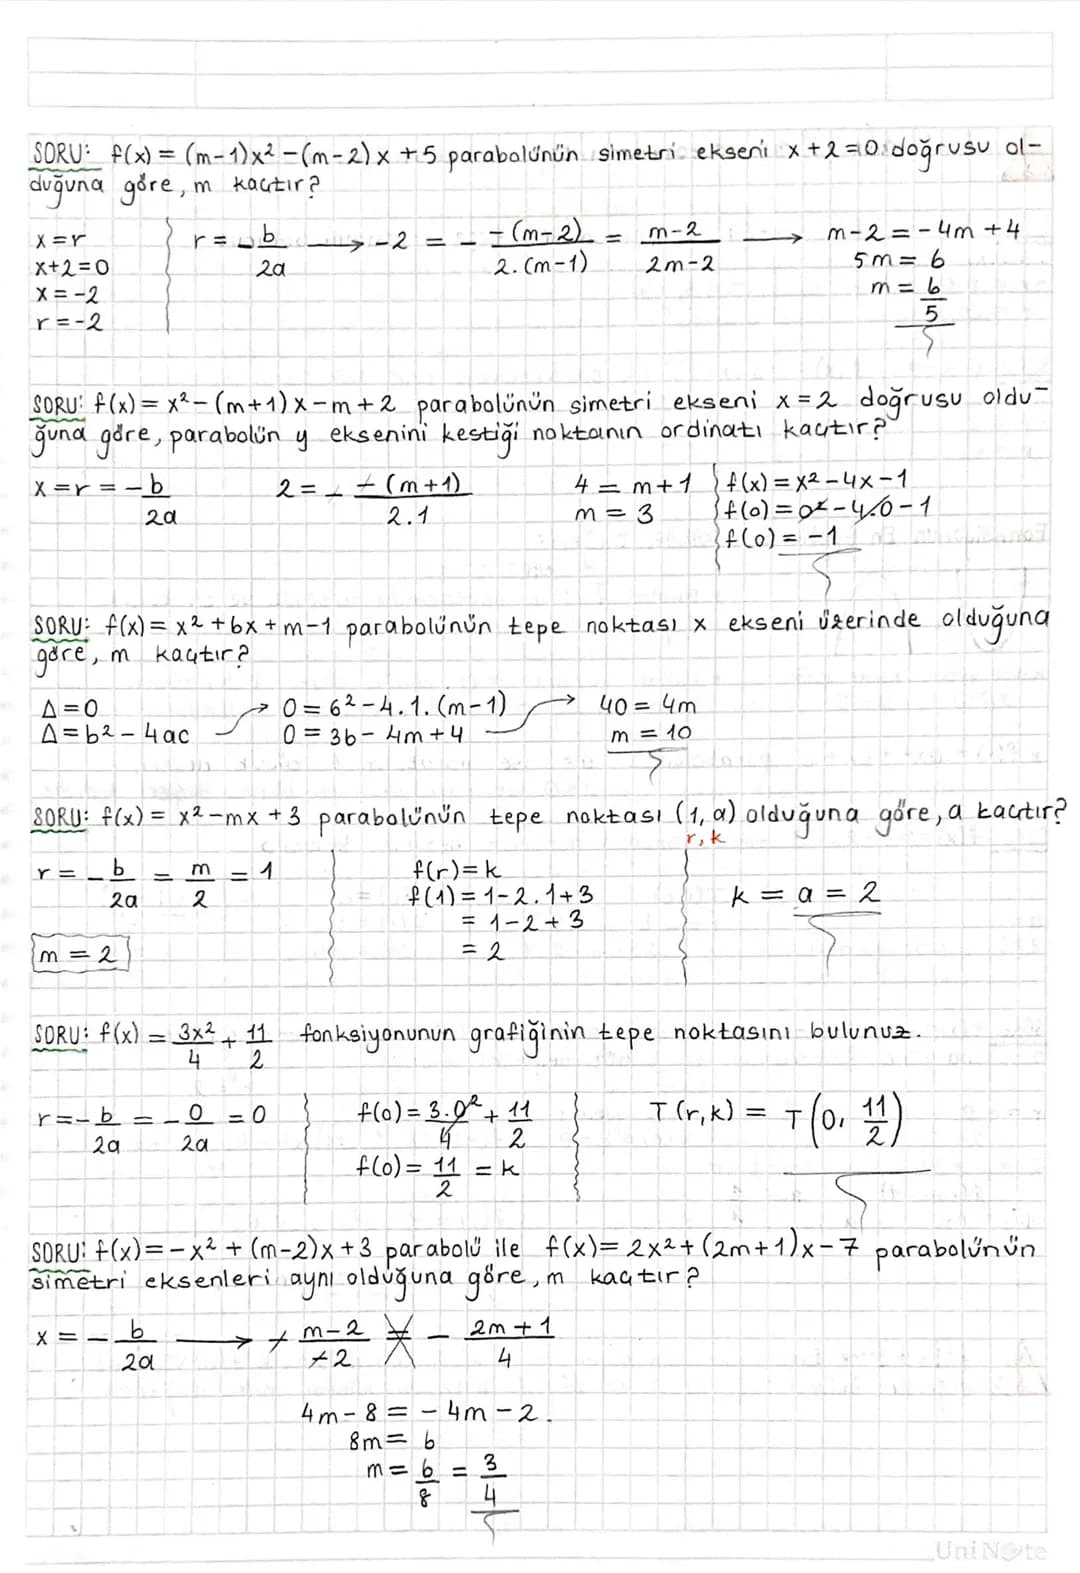 SORU: f(x) = (m-1)x² -(m-2)x +5 parabolünün simetri ekseni x+2=0 doğrusu ol-
duğuna göre, m kaçtır?
x=r
x+2=0
x=-2
r=-2
r = -b/2a → -2 = - -(m-2)/2.(m-1) = m-2/2m-2 → m-2 = -4m+4
5m = 6
m = 6/5
SORU: f(x) = x² - (m+1)x -m+2 parabolünün simetri ekseni x=2 doğrusu oldu-
ğuna göre, parabolün y eksenini kestiği noktanın ordinatı kaçtır?
x=r = -b/2a
2 = - -(m+1)/2.1
4 = m+1
m = 3
f(x) = x²-4x-1
f(0) = 0²-4.0-1
f(0) = -1
SORU: f(x) = x²+6x+m-1 parabolünün tepe noktası x ekseni üzerinde olduğuna
göre, m kaçtır?
Δ=0
Δ=b²-4ac
0 = 6²-4.1.(m-1)
0 = 36-4m+4
40 = 4m
m = 10
SORU: f(x) = x²-mx+3 parabolünün tepe noktası (1, a) olduğuna göre, a kaçtır?
r, k
r = -b/2a = m/2 = 1
m = 2
f(r)=k
f(1) = 1-2.1+3
= 1-2+3
= 2
k = a = 2
SORU: f(x) = 3x²/4 + 11/2 fonksiyonunun grafiğinin tepe noktasını bulunuz.
r=-b/2a = -0/2a = 0
f(0) = 3.0²/4 + 11/2
f(0) = 11/2 = k
T(r,k) = T(0, 11/2)
SORU: f(x) = -x² + (m-2)x+3 parabolü ile f(x) = 2x²+(2m+1)x-7 parabolünün
simetri eksenleri aynı olduğuna göre, m kaçtır?
x = -b/2a → - m-2/-2 = - 2m+1/4
4m-8 = -4m-2.
8m = 6
m = 6/8 = 3/4
UniNote